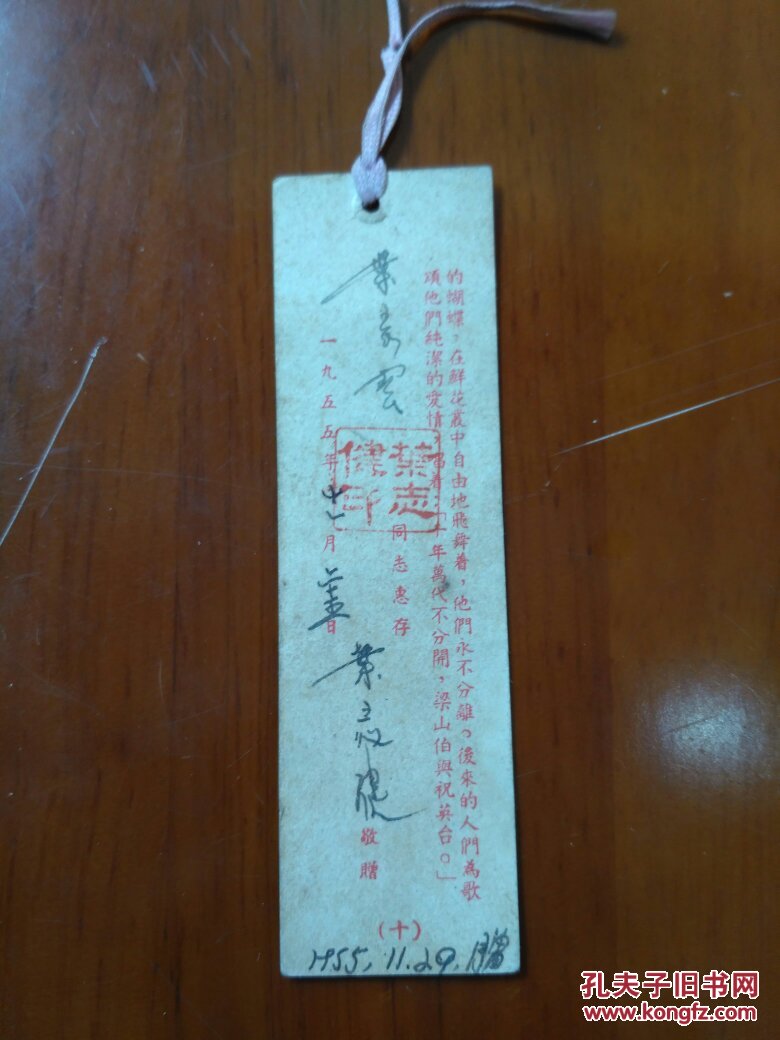 的蝴蝶，在鮮花叢中自由地飛舞着，他們永不分離。後來的人們為歌
頌他們純潔的愛情，唱着：「千年萬代不分開，梁山伯與祝英台。」
葉
雲
同志惠存
葉志
印
一九五五年十一月
日
葉志
敬贈
(十)
1955.11.29.贈
孔夫子旧书网
www.kongfz.com